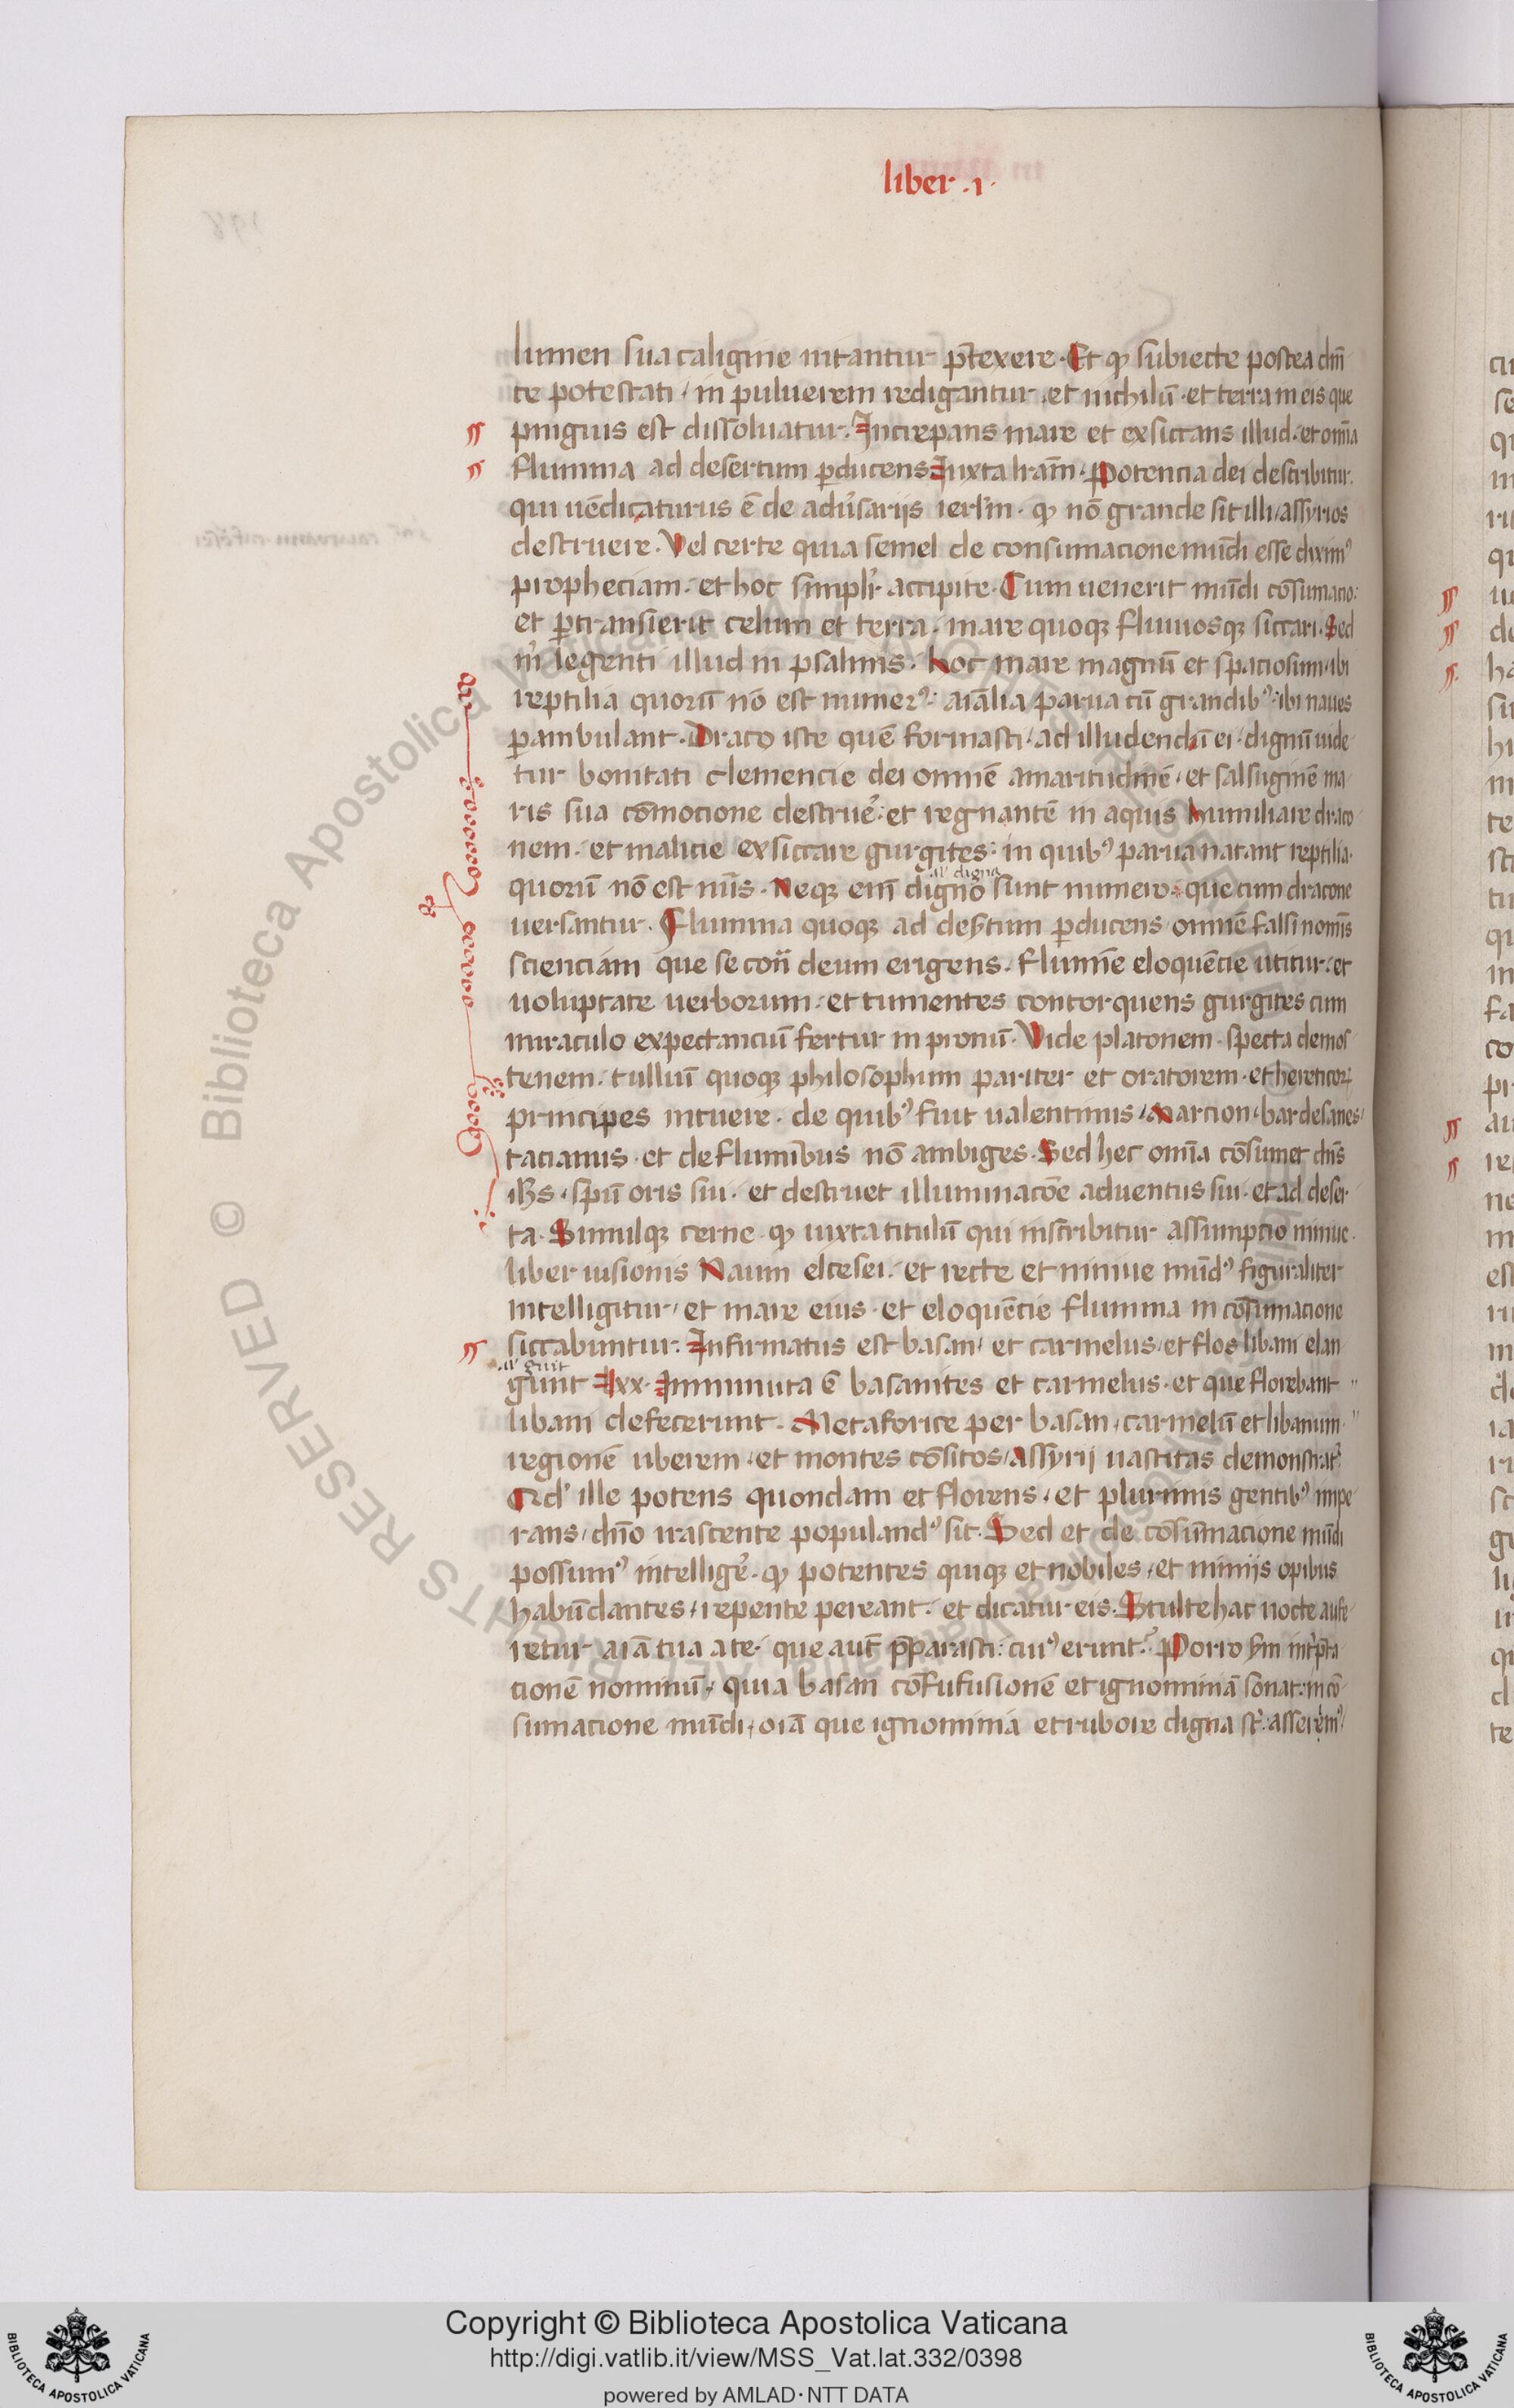 liber .1.
lumen sua caligine nitantur p̄texere. Et qꝫ subiecte postea diui
te potestati, in puluerem redigantur .et nichilū .et terra in eis que
pinguis est dissoluatur. Increpans mare et exsiccans illud. et om̄ia
flumina ad desertum ꝑducens Iuxta hr̄am. Potencia dei describitur.
qui uēdicaturus ē de adu̓sariis ierl̄m. qꝫ nō grande sit illi, assyrios
destruere. Vel certe quia semel de consumacione mūdi esse diximꝰ
propheciam. et hoc simplr̓. accipite. Cum uenerit mūdi cōsumacio:
et ꝑtransierit celum et terra. mare quoqꝫ fluuiosqꝫ siccari. Sed
m̓ legenti illud in psalmis. hoc mare magnū et spaciosum. ibi
reptilia quorū nō est numerꝰ. aīalia parua cū grandibꝰ. ibi naues
ꝑambulant. Draco iste quē formasti, ad illudendū ei. dignū uide
tur bonitati clemencie dei omnē amaritudinē, et salsuginē ma
ris sua cōmocione destrue̓. et regnantē in aquis humiliare draco
nem. et malicie exsiccare gurgites: in quibꝰ parua natant reptilia.
al' digna
quorū nō est nūs. Neqꝫ em̄ digno sunt numero. que cum dracone
uersantur. Flumina quoqꝫ ad deẜtum ꝑducens omnē falsi nomīs
scienciam que se con̄ deum erigens. flumīe eloquēcie utitur. et
uoluptate uerborum. et tumentes contorquens gurgites cum
miraculo expectanciū fertur in pronū. Vide platonem. specta demos
tenem. tulliū quoqꝫ philosophum pariter et oratorem. et hereticoꝝ
principes intuere. de quibꝰ fuit ualentinus, Marcion, bardesanes,
tacianus. et de fluminibus nō ambiges. Sed hec omīa cōsumet dn̄s
ih̄s, spū oris sui. et destruet illuminacōe aduentus sui. et ad deser
ta. Simulqꝫ cerne. qꝫ iuxta titulū qui inscribitur assumpcio niniue.
liber uisionis Naum elcesei. et recte et niniue mūdꝰ figuraliter
intelligitur, et mare eius. et eloquēcie flumina in cōsumacione
siccabuntur. Infirmatus est basan, et carmelus, et flos libani elan
al' guit
gunt lxx. Imminuta ē basanites et carmelus. et que florebant
libani defecerunt. Metaforice per basan, carmelū et libanum.
regionē uberem. et montes cōsitos, Assyrii uastitas demonstrat᷑
Qd' ille potens quondam et florens, et plurimis gentibꝰ impe
rans, dn̄o irascente populandꝰ sit. Sed et de cōsūmacione mūdi
possumꝰ intellige̓. qꝫ potentes quiqꝫ et nobiles, et nimiis opibus
habūdantes, repente pereant. et dicatur eis. Stulte hac nocte aufe
retur aīa tua a te. que aut̄ p̄parasti: cuiꝰ erunt? Porro ẜm int̓p̄ta
cionē nominū, quia basan cōfufusionē et ignominiā sonat: in cō
sumacione mūdi, oīa que ignominia et rubore digna st̄. asserem̓ꝰ
Copyright © Biblioteca Apostolica Vaticana
http://digi.vatlib.it/view/MSS_Vat.lat.332/0398
powered by AMLAD·NTT DATA